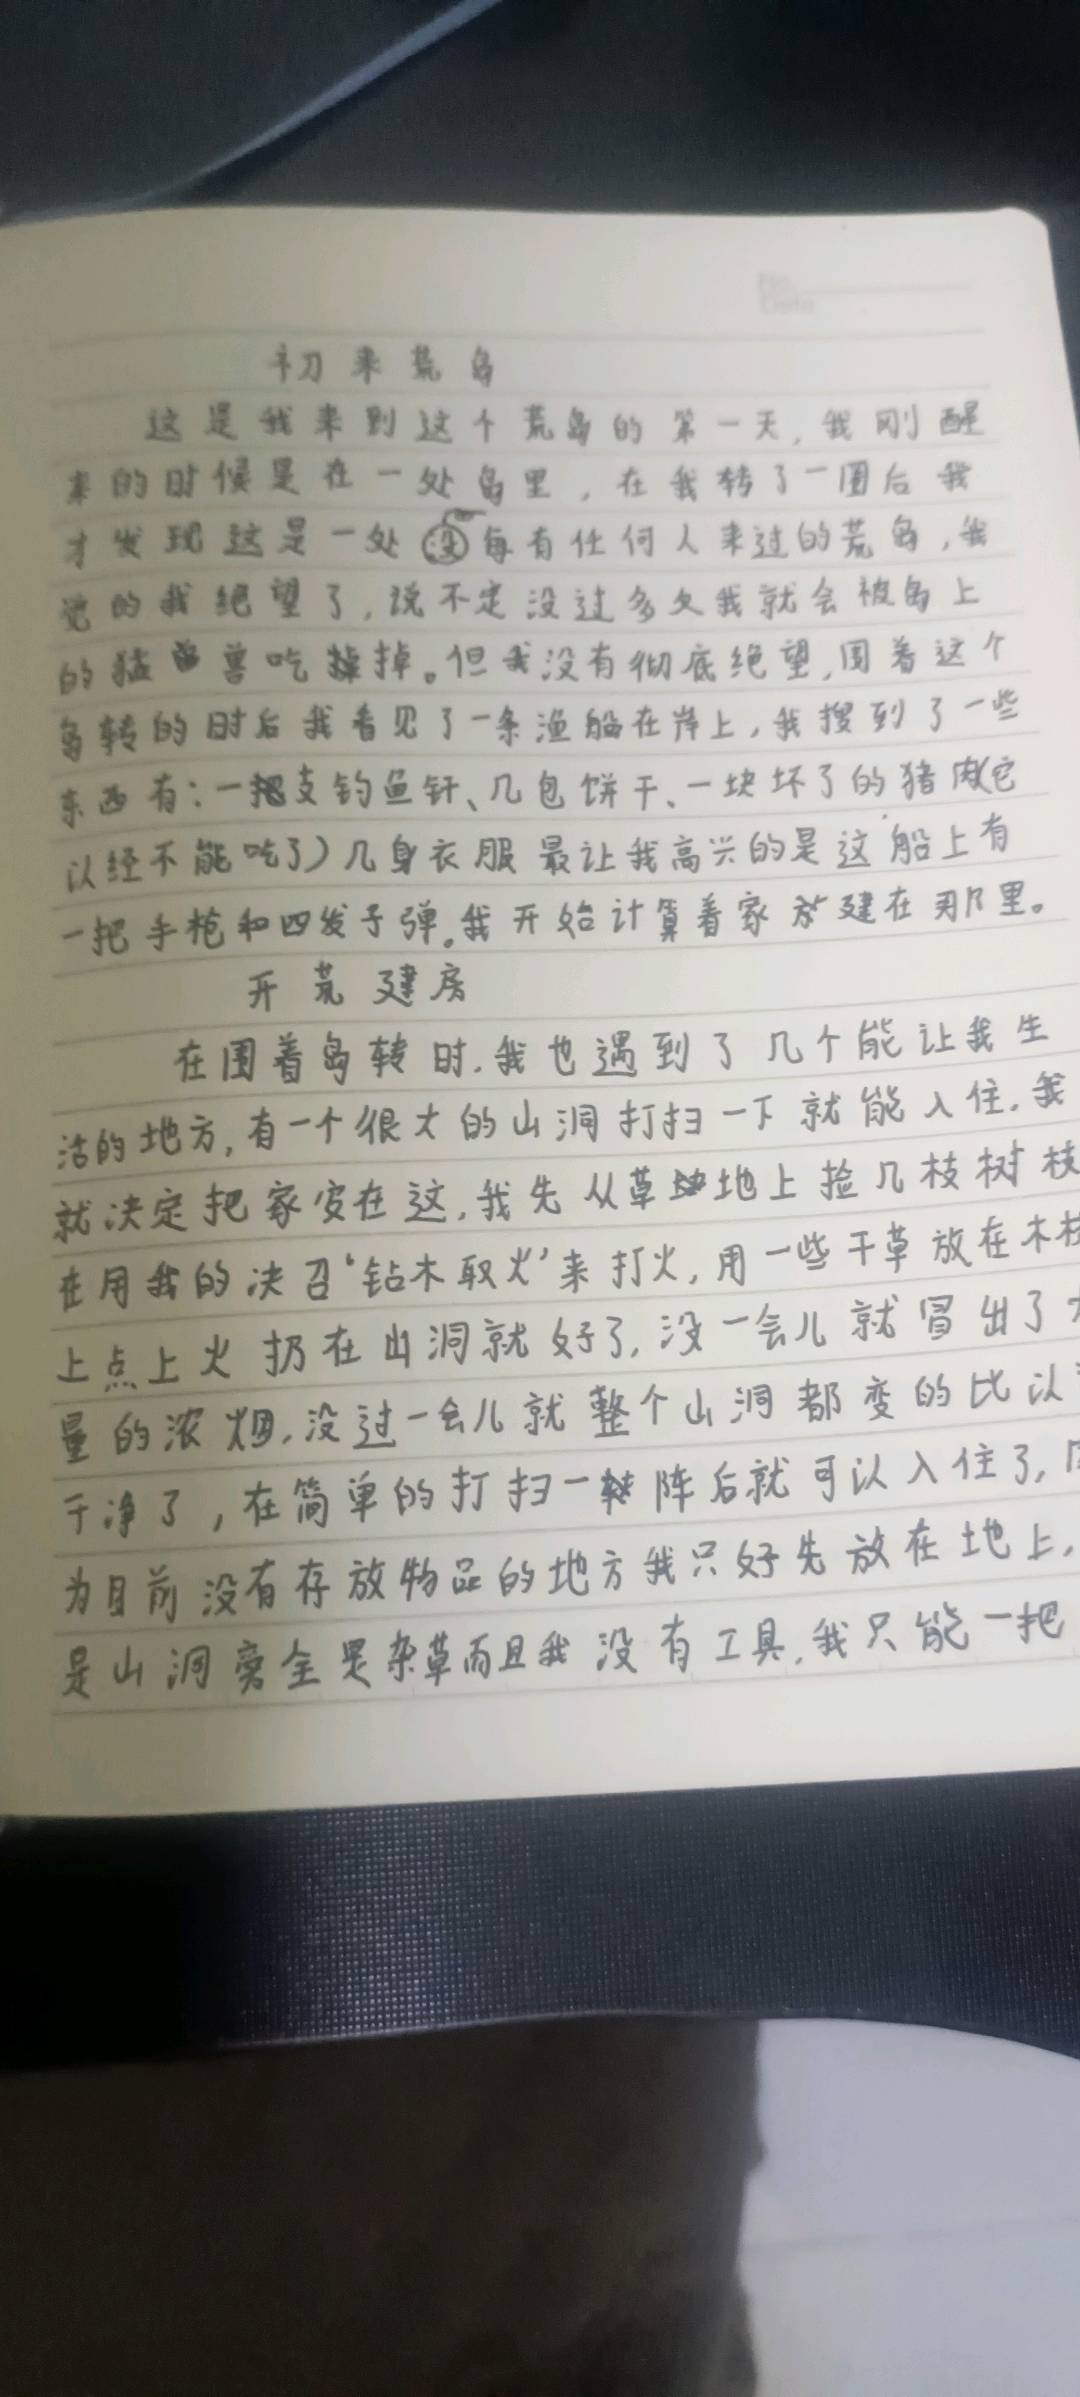 No.
Date
初来荒岛
这是我来到这个荒岛的第一天,我刚醒
来的时候是在一处岛里,在我转了一圈后我
才发现这是一处没有任何人来过的荒岛,我
觉的我绝望了,说不定没过多久我就会被岛上
的猛兽吃掉。但我没有彻底绝望,围着这个
岛转的时后我看见了一条渔船在岸上,我搜到了一些
东西有:一支钓鱼竿、几包饼干、一块坏了的猪肉(它
以经不能吃了)几身衣服最让我高兴的是这船上有
一把手枪和四发子弹。我开始计算着家建在那里。
开荒建房
在围着岛转时,我也遇到了几个能让我生
活的地方,有一个很大的山洞打扫一下就能入住,我
就决定把家安在这,我先从草地上捡几枝树枝
在用我的决召‘钻木取火’来打火,用一些干草放在木枝
上点上火扔在山洞就好了,没一会儿就冒出了
量的浓烟,没过一会儿就整个山洞都变的比以
干净了,在简单的打扫一阵后就可以入住了,
为目前没有存放物品的地方我只好先放在地上,
是山洞旁全是杂草而且我没有工具,我只能一把